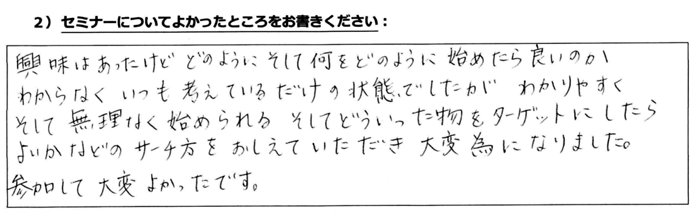 2）セミナーについてよかったところをお書きください：
興味はあったけど どのように そして何をどのように 始めたら良いのか
わからなく いつも 考えているだけの 状態、でしたが わかりやすく
そして 無理なく始められる そしてどういった物を ターゲットにしたら
よいかなどの サーチ方を おしえていただき 大変 為になりました。
参加して 大変 よかったです。